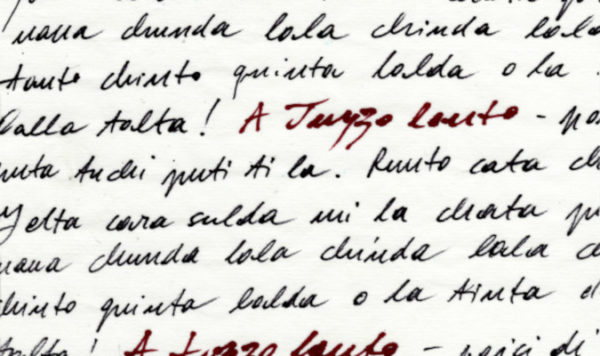 nana chunda lala chinda lala
tanto chinto quinta lalda o la
lalla talta! A Tuzzo lanto -
Tuchi puti ti la. Runto cata
Yelta cara sulda mi la chata
nana chunda lala chinda lala
chinto quinta lalda o la tinta
talta! A tuzzo lanto -